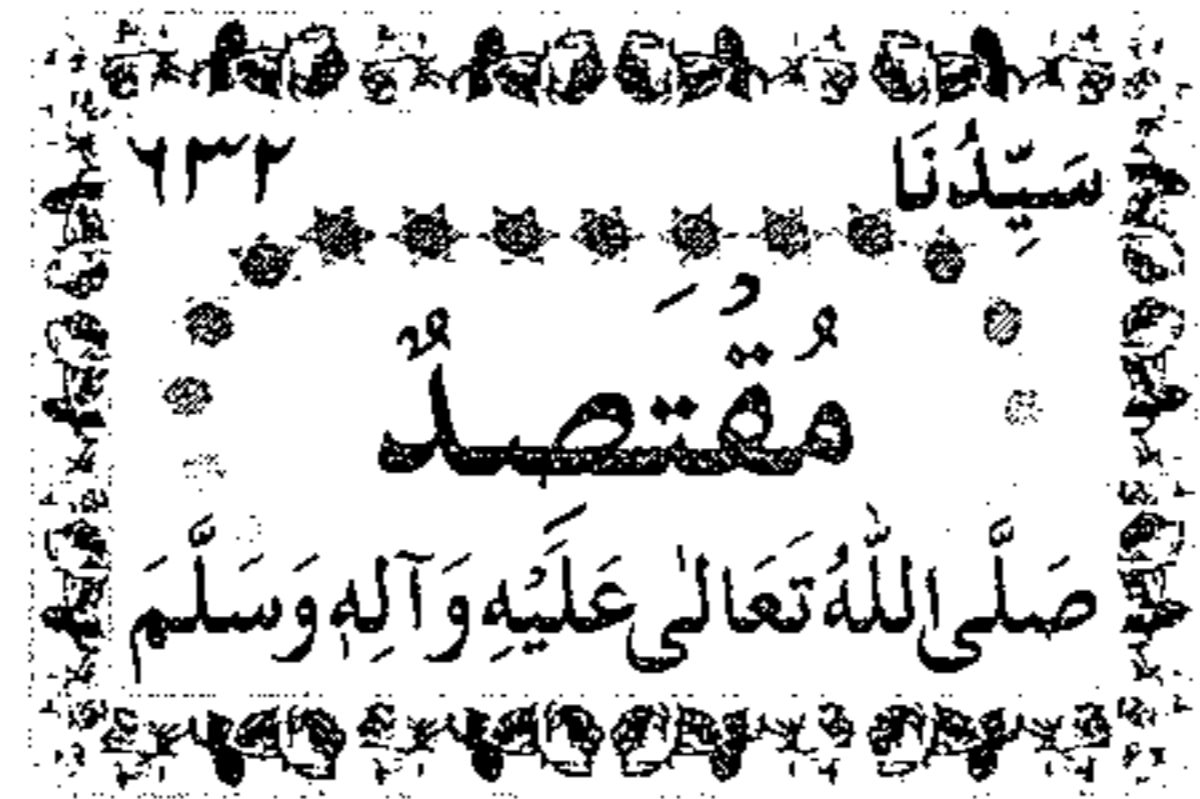 سَيِّدُنَا ٦٣٢
مُقْتَصِدٌ
صَلَّى اللّٰهُ تَعَالىٰ عَلَيْهِ وَآلِهٖ وَسَلَّمَ